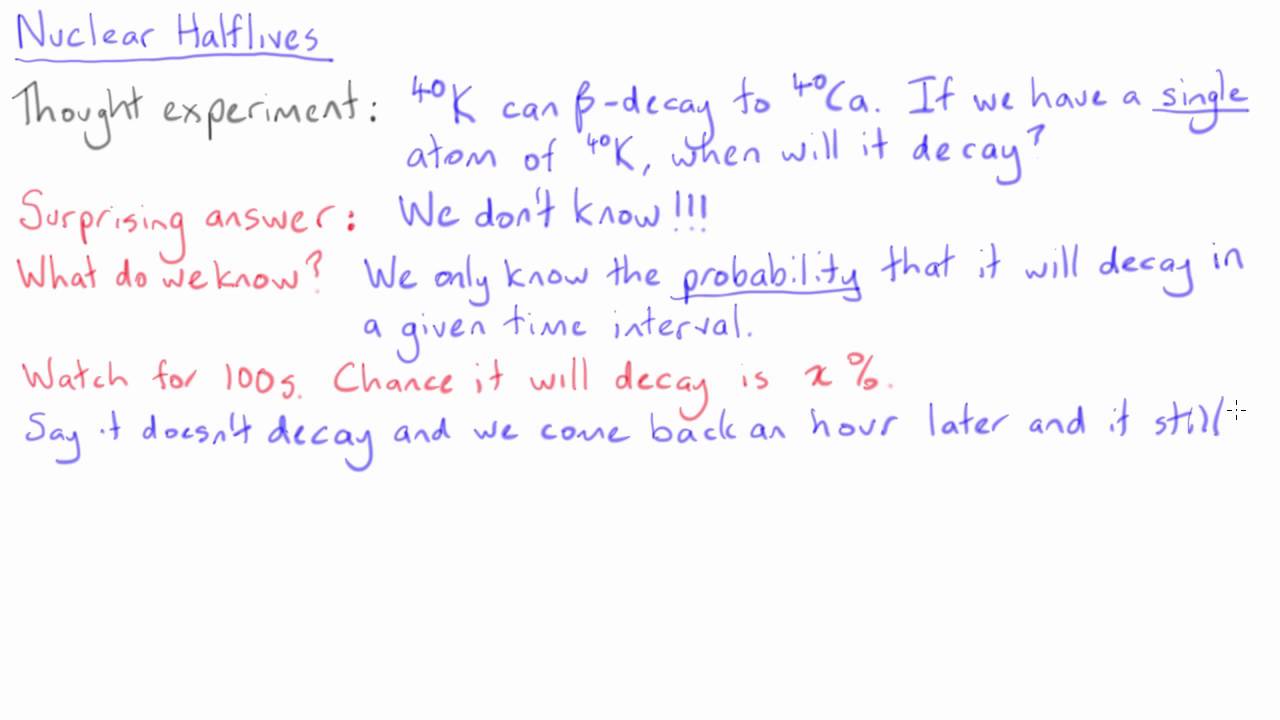 Nuclear Halflives
Thought experiment: ⁴⁰K can β-decay to ⁴⁰Ca. If we have a single
atom of ⁴⁰K, when will it decay?
Surprising answer: We don't know!!!
What do we know? We only know the probability that it will decay in
a given time interval.
Watch for 100s. Chance it will decay is x %.
Say it doesn't decay and we come back an hour later and it still